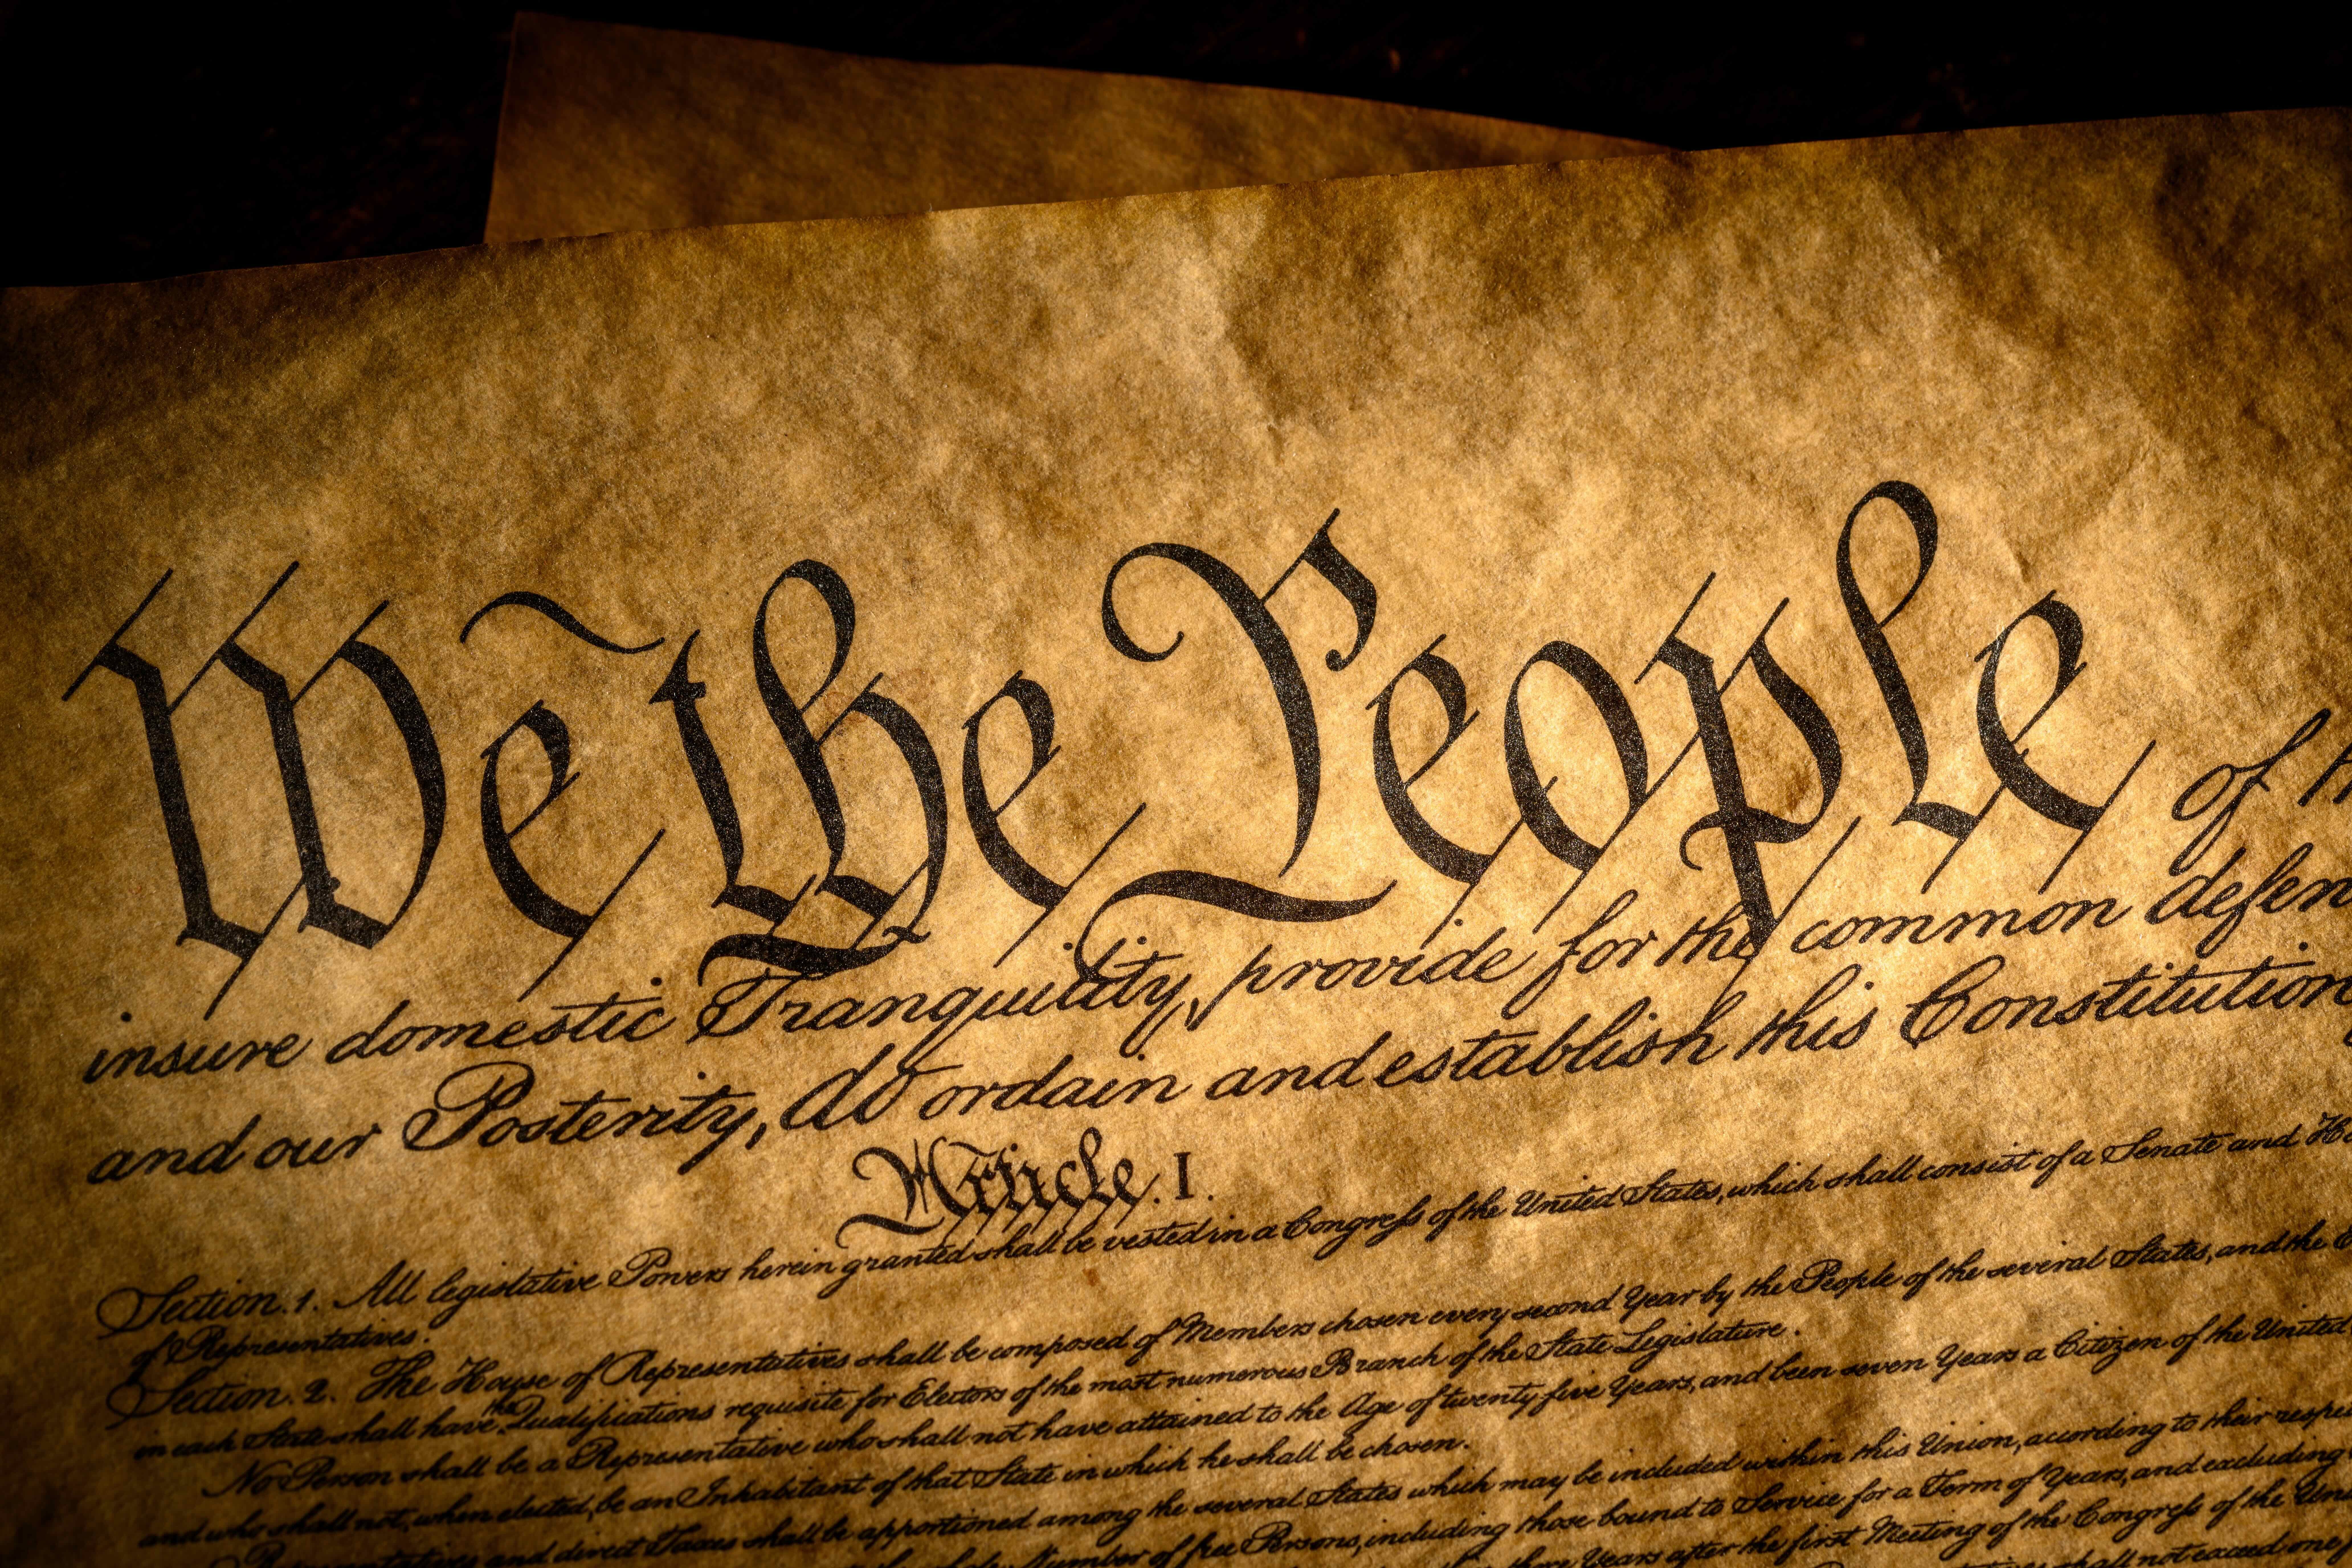 We the People of
insure domestic Tranquility, provide for the common defen
and our Posterity, do ordain and establish this Constitution
Article. I.
Section. 1. All legislative Powers herein granted shall be vested in a Congreſs of the United States, which shall consist of a Senate and
of Representatives.
Section. 2. The House of Representatives shall be composed of Members chosen every second Year by the People of the several States, and the
in each State shall have the Qualifications requisite for Electors of the most numerous Branch of the State Legislature.
No Person shall be a Representative who shall not have attained to the Age of twenty five Years, and been seven Years a Citizen of the United
and who shall not, when elected, be an Inhabitant of that State in which he shall be chosen.
Representatives and direct Taxes shall be apportioned among the several States which may be included within this Union, according to their respe
whole Number of free Persons, including those bound to Service for a Term of Years, and excluding
three Years after the first Meeting of the Congreſs of the Uni
shall not exceed one